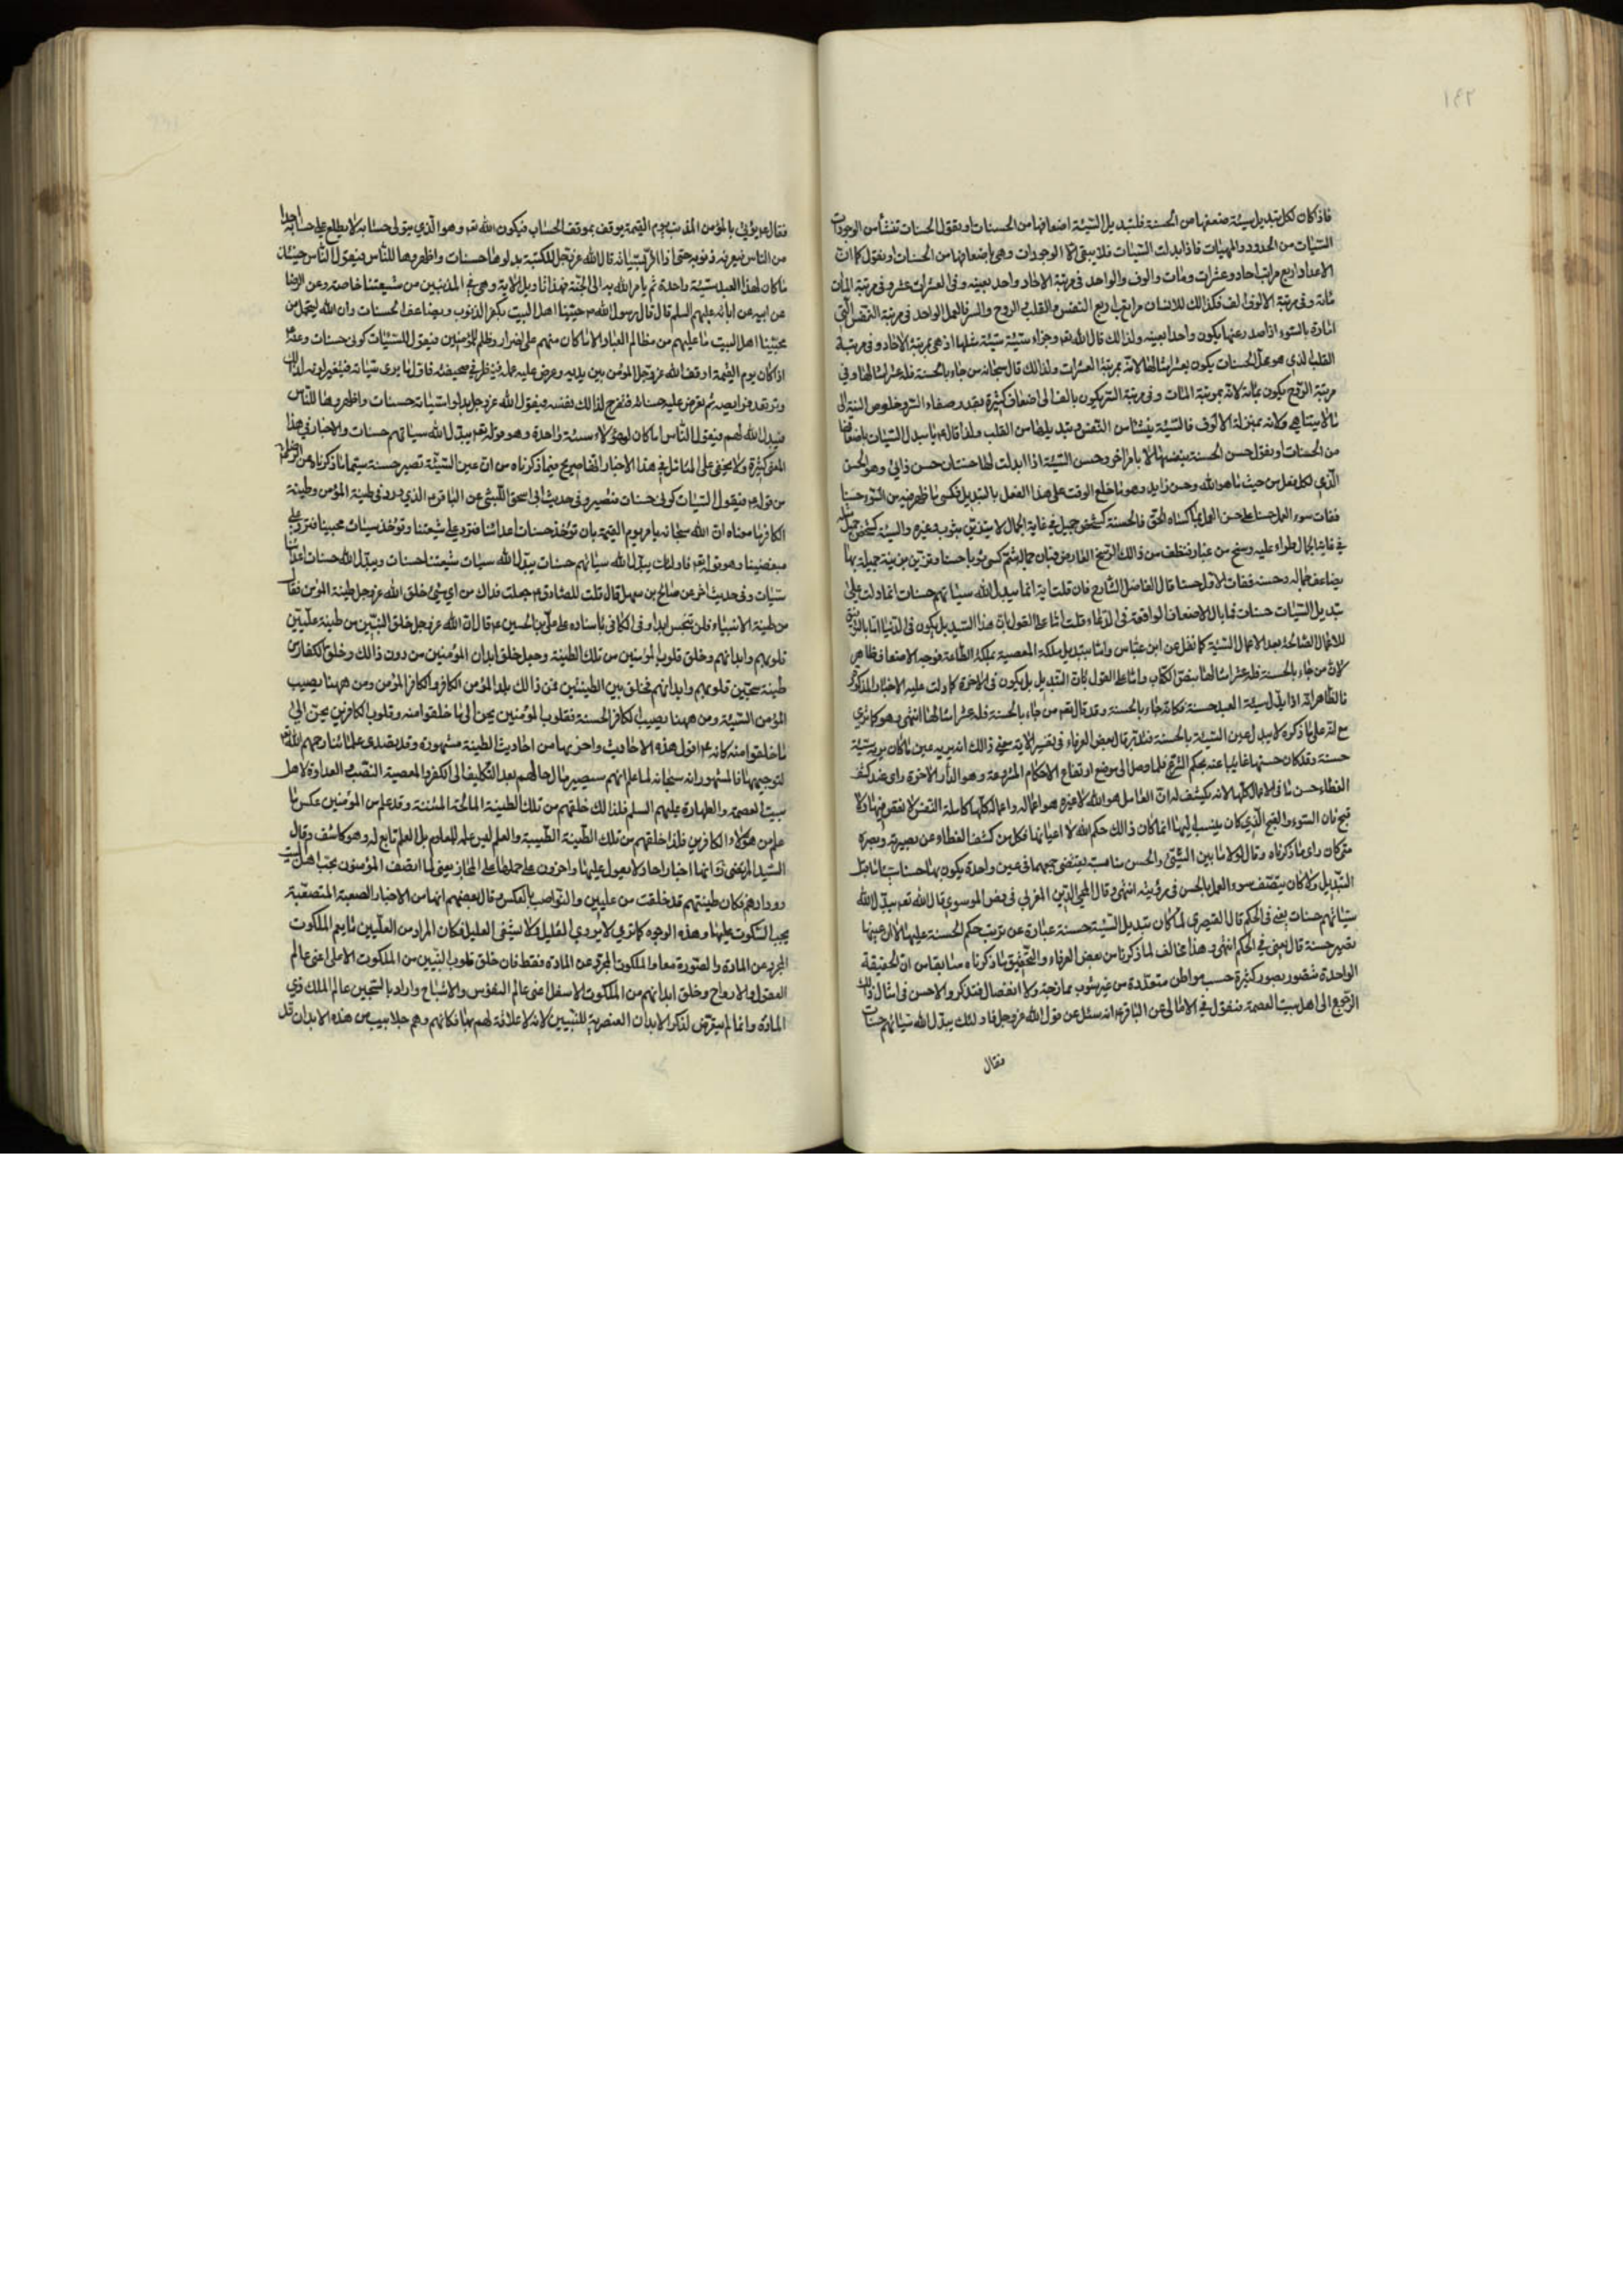 ١٤٢
فاذ كان لكل تبديل سيئة ضعفها من الحسنة فلتبديل السيئة اضعافها من الحسنات او نقول الحسنات تنشأ من الوجودات
السيئات من الحدود والمهيات فاذا بدلت السيئات فلا يبقى الا الوجودات وهى اضعافها من الحسنات او نقول كما ان
الاعداد اربع مراتب احاد وعشرات ومات والوف والواحد فى مرتبة الاحاد واحد بعينه وفى العشرات عشر وفى مرتبة المات
مائة وفى مرتبة الالوف الف فكذالك للانسان مراتب اربع النفس والقلب الروح والسر فالعمل الواحد فى مرتبة النفس التى
امارة بالسوء اذا صدر عنها يكون واحدا بعينه ولذالك قال الله تعم وجزاء سيئة سيئة مثلها اذ هى بمرتبة الاحاد وفى مرتبة
القلب الذى هو محل الحسنات يكون بعشر امثالها لانه بمرتبة العشرات ولذالك قال سبحانه من جاء بالحسنة فله عشر امثالها وفى
مرتبة الروح يكون بمائة لانه بمرتبة المات وفى مرتبة السر يكون بالف الى اضعاف كثيرة بقدر صفاء السر وخلوص النية الى
ما لا يتناهى وكانه بمنزلة الالوف فالسيئة ينشأ من النفس وتبديلها من القلب ولذا قال ء يبدل السيئات باضعافها
من الحسنات او نقول حسن الحسنة بنفسها لا بامر اخر وحسن السيئة اذا ابدلت لها حسنان حسن ذاتى وهو الحسن
الذى لكل فعل من حيث ما هو الله وحسن زايد وهو ما خلع الوقت على هذا الفعل بالتبديل فكسى ما ظهر فيه من السوء حسنا
ففات سوء العمل حسنا على حسن العمل بما كساه الحق فالحسنة كشخص جميل فى غاية الجمال لا يتزين بثوب وغيره والسيئة كشخص جميل مثله
فى غاية الجمال طراء عليه وسخ من غبار فنظف من ذالك الوسخ العارض فبان جماله ثم كسى ثوبا حسنا وتزين بزينة جميلة بها
يضاعف جماله وحسنه ففات الاول حسنا قال الفاضل الشارح فان قلت اية انما يبدل الله سيئاتهم حسنات انما دلت على
تبديل السيئات حسنات فما بال الاضعاف الواقعة فى الدعاء قلت اما على القول بان هذا التبديل يكون فى الدنيا اما بالتوفيق
للاعمال الصالحة بعد الاعمال السيئة كما نقل عن ابن عباس واما بتبديل ملكة المعصية بملكة الطاعة فوجه الاضعاف ظاهر
لان من جاء بالحسنة فله عشر امثالها بنص الكتاب واما على القول بان التبديل بل يكون فى الاخرة كما دلت عليه الاخبار المذكورة
فالظاهر انه اذا بدل سيئة العبد حسنة فكانه جاء بالحسنة وقد قال تعم من جاء بالحسنة فله عشر امثالها انتهى وهو كما ترى
حسنة وقد كان حسنها غايبا عنه بحكم الشرع فلما وصل الى موضع ارتفاع الاحكام المشروعة وهو الدار الاخرة راى عند كشف
الغطاء حسن ما فى الاعمال كلها لانه يكشف له ان العامل هو الله لا غيره فهو اعماله واعماله كلها كاملة النفس لا نقص فيها ولا
قبح فان السوء والقبح الذى كان ينسب اليها انما كان ذالك حكم الله لا اعيانها فكل من كشف الغطاء عن بصيرته وبصره
متى كان راى ما ذكرناه وقال لولا ما بين السيئ والحسن مناسبة يقتضى جمعهما فى عين واحدة يكون بها حسنا سيئا ما قبل
التبديل ولا كان يتصف سوء العمل بالحسن فى رؤيته انتهى وقال المحى الدين المغربى فى فص الموسوى قال الله تعم يبدل الله
سيئاتهم حسنات يعنى فى الحكم قال القيصرى لما كان تبديل السيئة حسنة عبارة عن ترتيب حكم الحسنة عليها لا ان عينها
تصير حسنة قال يعنى فى الحكم انتهى وهذا مخالف لما ذكرنا من بعض العرفاء والتحقيق ما ذكرناه سابقا من ان الحقيقة
الواحدة متصور بصور كثيرة حسب مواطن متعددة من غير شوب ممازجة ولا انفصال فتذكر والاحسن فى امثال ذالك
الرجوع الى اهل بيت العصمة فنقول فى الامالى عن الباقر ء انه سئل عن قول الله عز وجل فاولئك يبدل الله سيئاتهم حسنات
فقال
فقال ء يؤتى بالمؤمن المذنب يوم القيمة يوقف بموقف الحساب فيكون الله تعم وهو الذى يتولى حسابه لا يطلع على حسابه احدا
من الناس فيعرفه ذنوبه حتى اذا اقر بسيئاته قال الله عز وجل للكتبة بدلوها حسنات واظهروها للناس فيقول الناس حينئذ
ما كان لهذا العبد سيئة واحدة ثم يامر الله به الى الجنة فهذا تاويل الاية وهى فى المذنبين من شيعتنا خاصة وعن الرضا
عن ابيه عن ابائه عليهم السلم قال قال رسول الله ص حبنا اهل البيت يكفر الذنوب ويضاعف الحسنات وان الله ليتحمل من
محبينا اهل البيت ما عليهم من مظالم العباد الا ما كان منهم على اضرار وظلم للمؤمنين فيقول للسيئات كونى حسنات وعنه ء
اذا كان يوم القيمة اوقف الله عز وجل المؤمن بين يديه وعرض عليه عمله فينظر فى صحيفته فاول ما يرى سيئاته فيتغير لونه لذالك
وترتعد فرايصه ثم تعرض عليه حسناته فتفرح لذالك نفسه فيقول الله عز وجل بدلوا سيئاته حسنات واظهروها للناس
فيبدل الله لهم فيقول الناس اما كان لهؤلاء سيئة واحدة وهو قوله تعم يبدل الله سيئاتهم حسنات والاخبار فى هذا
المعنى كثيرة ولا يخفى على المتامل فى هذا الاخبار انها صريح فيما ذكرناه من ان عين السيئة تصير حسنة سيما ما ذكرناه عن الرضا ء
من قوله فيقول للسيئات كونى حسنات فتصير وفى حديث ابى اسحق الليثى عن الباقر ء الذى ورد فى طينة المؤمن وطينة
الكافر ما معناه ان الله سبحانه يامر يوم القيمة بان تؤخذ حسنات اعدائنا فترد على شيعتنا وتؤخذ سيئات محبينا فترد على
مبغضينا وهو قوله تعم فاولئك يبدل الله سيئاتهم حسنات يبدل الله سيئات شيعتنا حسنات ويبدل الله حسنات اعدائنا
سيئات وفى حديث اخر عن صالح بن سهل قال قلت للصادق ء جعلت فداك من اى شئ خلق الله عز وجل طينة المؤمن فقال
من طينة الانبياء فلن تنجس ابدا وفى الكافى باسناده على على بن الحسين ء قال ان الله عز وجل خلق النبيين من طينة عليين
قلوبهم وابدانهم وخلق قلوب المؤمنين من تلك الطينة وجعل خلق ابدان المؤمنين من دون ذالك وخلق الكفار من
طينة سجين قلوبهم وابدانهم فخلق بين الطينتين فمن ذالك يلد المؤمن الكافر والكافر المؤمن ومن ههنا يصيب
المؤمن السيئة ومن ههنا يصيب الكافر الحسنة فقلوب المؤمنين يحن الى ما خلقوا منه وقلوب الكافرين يحن الى
ما خلقوا منه اقول هذه الاحاديث واخر بها من احاديث الطينة مشهورة وقد تصدى علمائنا رحمهم الله
لتوجيهها فالمشهور انه سبحانه لما علم انهم سيصير مال حالهم بعد التكليف الى الكفر والمعصية النصب العداوة لاهل
بيت العصمة والطهارة عليهم السلم فلذالك خلقهم من تلك الطينة المالحة المنتنة وقد علم من المؤمنين عكس ما
علم من هؤلاء الكافرين فلذا خلقهم من تلك الطينة الطيبة والعلم ليس علة للمعلوم بل العلم تابع له وهو كاشف وقال
السيد المرتضى انها اخبار احاد لا نعول عليها واخرون على حملها على المجاز يعنى لما اتصف المؤمنون بحب اهل البيت
وودادهم فكان طينتهم قد خلقت من عليين والنواصب بالعكس وقال بعضهم انها من الاخبار الصعبة المتصعبة
يجب السكوت عليها وهذه الوجوه كما ترى لا يروى الغليل ولا يشفى العليل فكان المراد من العليين ما يعم الملكوت
المجرد عن المادة والصورة معا والملكوت المجرد عن المادة فقط فان خلق قلوب النبيين من الملكوت الاعلى اعنى عالم
العقول والارواح وخلق ابدانهم من الملكوت الاسفل اعنى عالم النفوس والاشباح واراد بالسجين عالم الملك ذى
المادة وانما لم يتعرض لذكر الابدان العنصرية للنبيين لانه لا علاقة لهم بها فكانهم وهم جلابيب من هذه الابدان قد